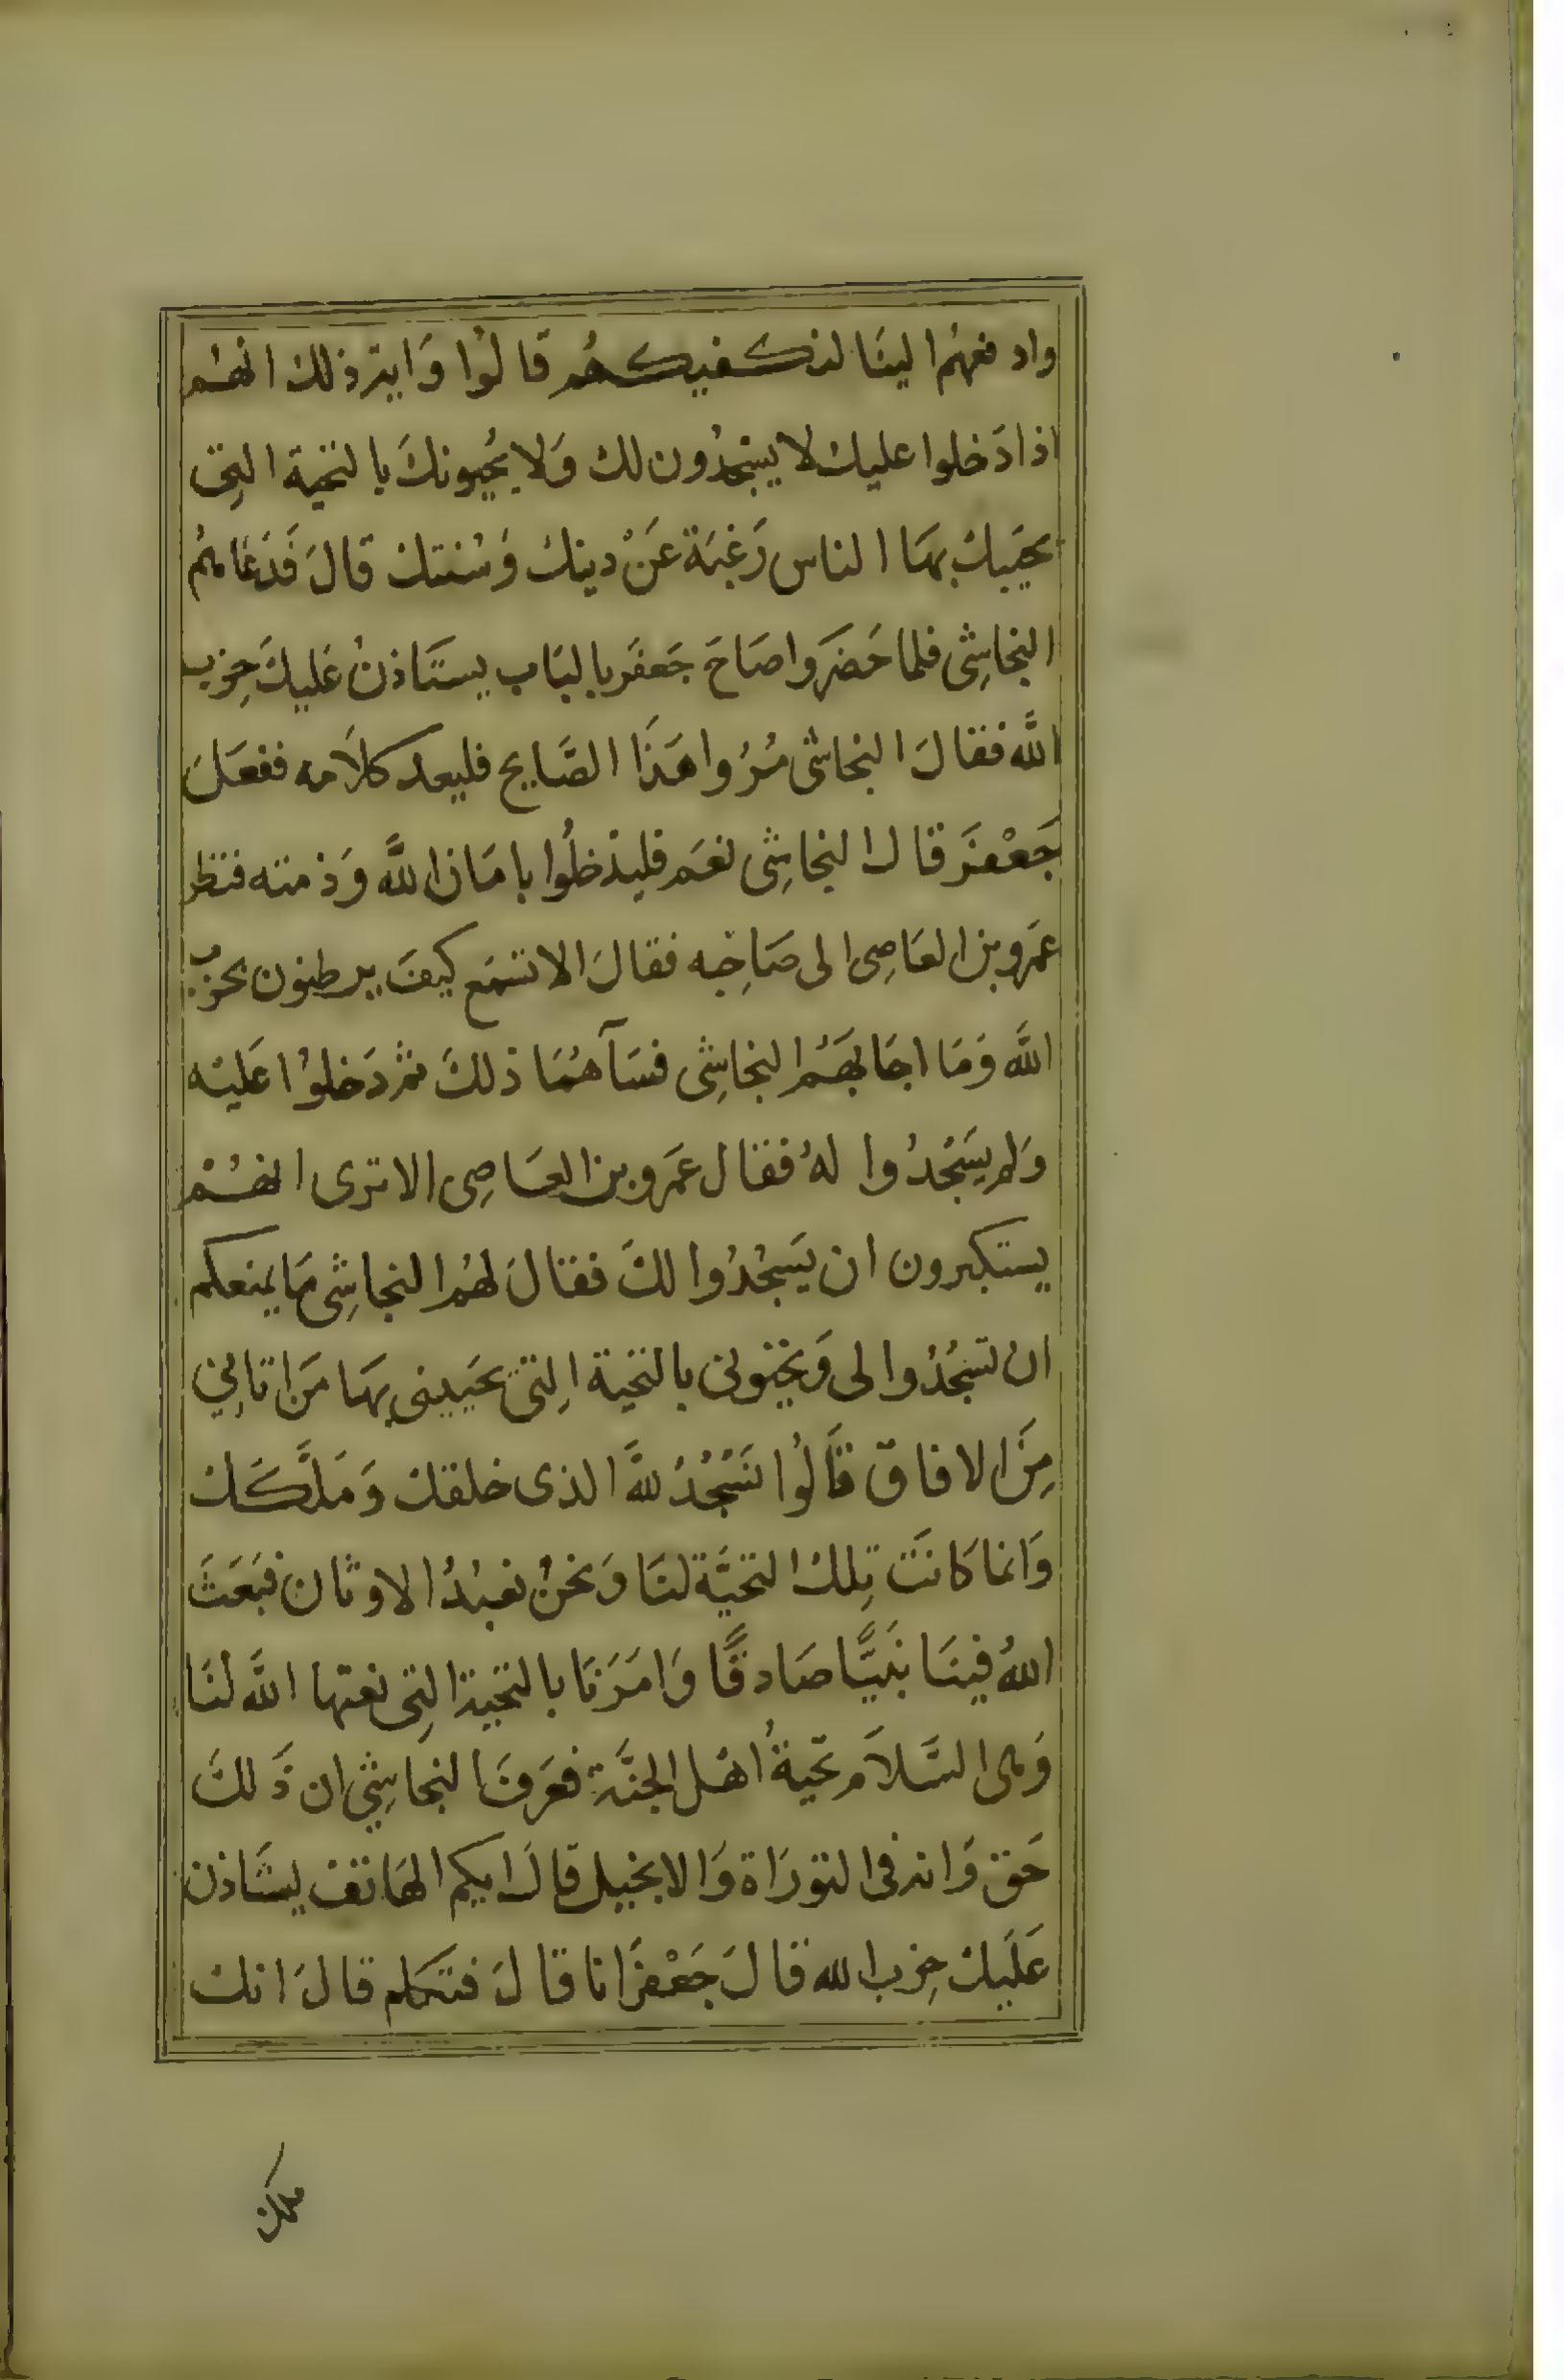 وادفعهُم الينَا لنكفيكهُم قالوُا وَاية ذلك انهُم
اذا دَخلوا عليك لا يسجدُون لك وَلا يحُيونكَ بالتحية التِى
يحيَيك بهَا الناس رَغبَة عَنْ دينك وَسُنتك قالَ فَدَعَاهُم
النجاشِى فلما حَضَروا صَاحَ جَعفَر بالبَاب يستَاذنُ عَليكَ حِزب
اللَّه فقالَ النجاشى مُرُوا هَذَا الصَّايح فليعد كلاَمه ففعَلَ
جَعْفَر قال النجاشِى نعَم فليدخلُوا بامَان اللَّه وَذمته فنظر
عمَرو بن العَاصِى الى صَاحِبه فقالَ الا تسْمَع كيفَ يرطنون بحزب
اللَّه وَمَا اجَابهَمُ النجاشِى فسَآهُمَا ذلكَ ثم دَخلوُا عَليْه
وَلم يسَجْدُوا لهُ فقال عَمَرو بن العَاصِى الا ترى انهُمْ
يستكبرون ان يَسجُدُوا لكَ فقالَ لهُمُ النجاشِى مَا يمنعكم
ان تسَجُدُوا لى وَتحيّونى بالتحية التِى يحَيينى بهَا مَن اتانِي
مِنَ الافاق قَالُوا نَسْجُدُ للَّه الذى خلقك وَمَلَّكَك
وَانما كَانَتَ تِلك التحيَّة لنَا وَنحنُ نعبُدُ الاوثان فبَعَثَ
اللهُ فينَا نَبيَّا صَادقًا وَامَرَنَا بالتحية التِى نعتها اللَّه لنَا
وَهى السَّلاَم تحيةُ اهْل الجنَّة فعَرفَ النجاشِيُ ان ذَلكَ
حَق وَانه فى التورَاة وَالانجيل قالَ ايكم الهَاتف يستَاذن
عَلَيكَ حِزب الله قالَ جَعْفَر انا قالَ فتكلم قالَ انك
ملك